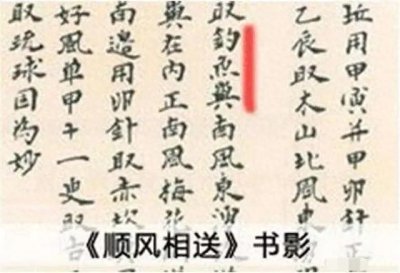 坵用甲寅并甲卯針正
乙辰取木山北風東
取釣魚嶼南風東湧
與在内正南風梅花
南邊用卯針取赤坎
好風單甲十一更取古
取琉球国為妙
《顺风相送》书影